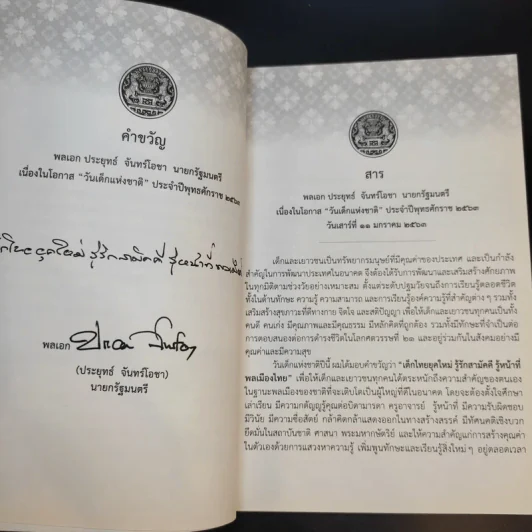 คำขวัญ
พลเอก ประยุทธ์ จันทร์โอชา นายกรัฐมนตรี
เนื่องในโอกาส "วันเด็กแห่งชาติ" ประจำปีพุทธศักราช ๒๕๖๓
เด็กไทยยุคใหม่ รู้รักสามัคคี รู้หน้าที่
พลเอก
(ประยุทธ์ จันทร์โอชา)
นายกรัฐมนตรี
สาร
พลเอก ประยุทธ์ จันทร์โอชา นายกรัฐมนตรี
เนื่องในโอกาส "วันเด็กแห่งชาติ" ประจำปีพุทธศักราช ๒๕๖๓
วันเสาร์ที่ ๑๑ มกราคม ๒๕๖๓
เด็กและเยาวชนเป็นทรัพยากรมนุษย์ที่มีคุณค่าของประเทศ และเป็นกำลัง
สำคัญในการพัฒนาประเทศในอนาคต จึงต้องได้รับการพัฒนาและเสริมสร้างศักยภาพ
ในทุกมิติตามช่วงวัยอย่างเหมาะสม ตั้งแต่ระดับปฐมวัยจนถึงการเรียนรู้ตลอดชีวิต
ทั้งในด้านทักษะ ความรู้ ความสามารถ และการเรียนรู้องค์ความรู้ที่สำคัญต่าง ๆ รวมทั้ง
เสริมสร้างสุขภาวะที่ดีทางกาย จิตใจ และสติปัญญา เพื่อให้เด็กและเยาวชนทุกคนเป็นทั้ง
คนดี คนเก่ง มีคุณภาพและมีคุณธรรม มีหลักคิดที่ถูกต้อง รวมทั้งมีทักษะที่จำเป็นต่อ
การตอบสนองต่อการดำรงชีวิตในโลกศตวรรษที่ ๒๑ และอยู่ร่วมกันในสังคมอย่างมี
คุณค่าและมีความสุข
วันเด็กแห่งชาติปีนี้ ผมได้มอบคำขวัญว่า "เด็กไทยยุคใหม่ รู้รักสามัคคี รู้หน้าที่
พลเมืองไทย" เพื่อให้เด็กและเยาวชนทุกคนได้ตระหนักถึงความสำคัญของตนเอง
ในฐานะพลเมืองของชาติที่จะเติบโตเป็นผู้ใหญ่ที่ดีในอนาคต โดยจะต้องตั้งใจศึกษา
เล่าเรียน มีความกตัญญูรู้คุณต่อบิดามารดา ครูอาจารย์ รู้หน้าที่ มีความรับผิดชอบ
มีวินัย มีความซื่อสัตย์ กล้าคิดกล้าแสดงออกในทางสร้างสรรค์ มีทัศนคติเชิงบวก
ยึดมั่นในสถาบันชาติ ศาสนา พระมหากษัตริย์ และให้ความสำคัญแก่การสร้างคุณค่า
ในตัวเองด้วยการแสวงหาความรู้ เพิ่มพูนทักษะและเรียนรู้สิ่งใหม่ ๆ อยู่ตลอดเวลา